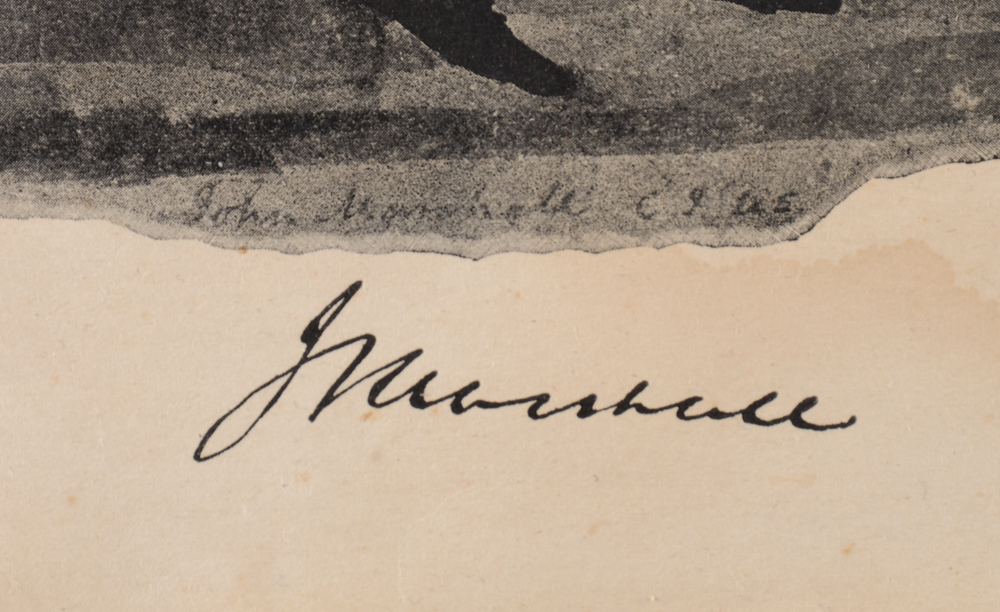 John Marshall C J US
J Marshall